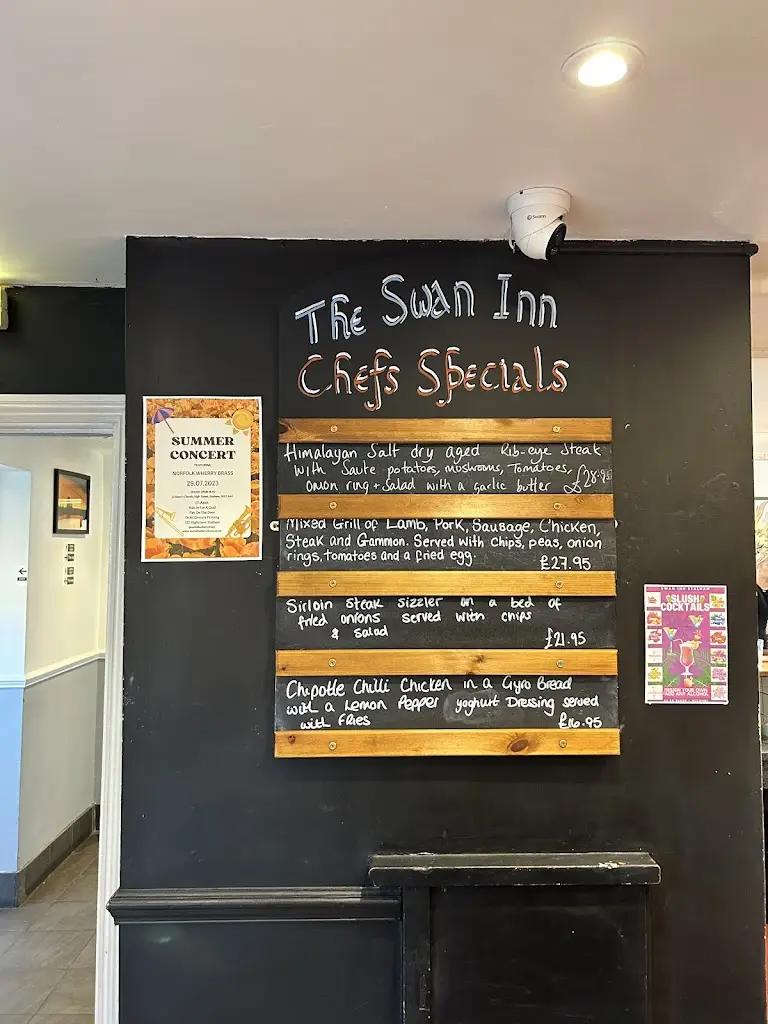 Swann
The Swan Inn
Chefs Specials
Himalayan Salt dry aged Rib-eye Steak
with Saute potatoes, mushrooms, Tomatoes,
onion ring + Salad with a garlic butter £28.95
Mixed Grill of Lamb, Pork, Sausage, Chicken,
Steak and Gammon. Served with Chips, peas, onion
rings, tomatoes and a fried egg. £27.95
Sirloin steak sizzler on a bed of
fried onions served with chips
& salad £21.95
Chipotle Chilli Chicken in a Gyro Bread
with a Lemon Pepper yoghurt Dressing served
with fries £16.95
SUMMER
CONCERT
FEATURING
NORFOLK WHERRY BRASS
29.07.2023
SLUSH
COCKTAILS
DESIGN YOUR OWN
ADD ANY ALCOHOL